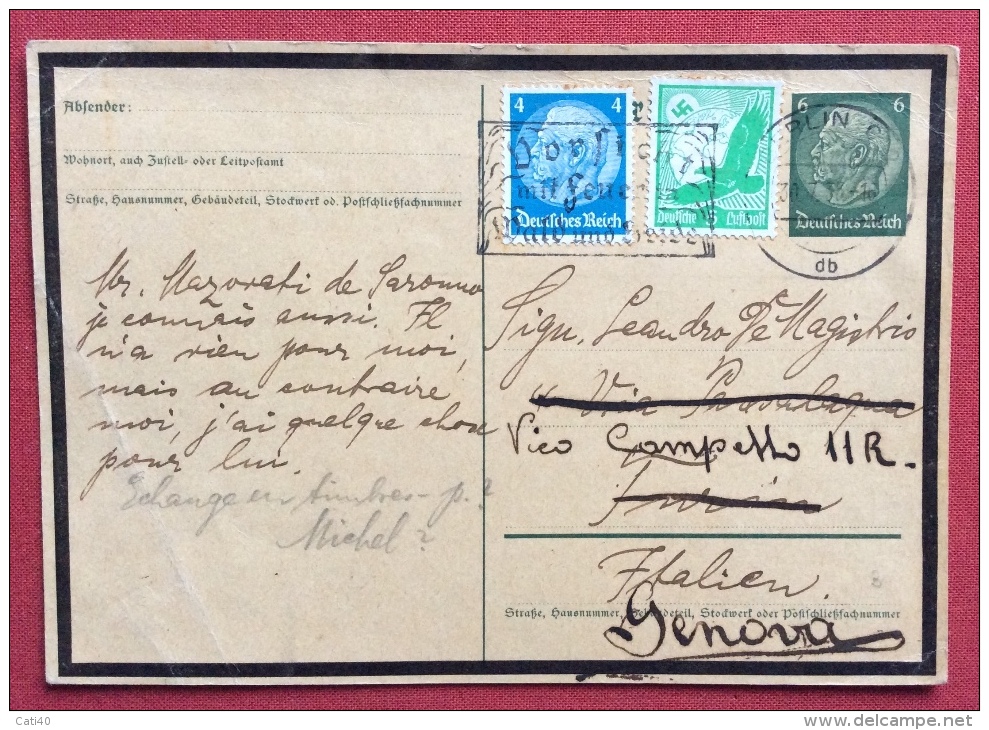 Absender:
Wohnort, auch Zustell- oder Leitpostamt
Straße, Hausnummer, Gebäudeteil, Stockwerk od. Postschließfachnummer
4 4
Deutsches Reich
Deutsche 5 Luftpost
6 6
Deutsches Reich
Vorsicht
mit Feuer
Wald und Heide
BERLIN C
db
Mr. Mazorati de Saronno
je connais aussi. Il
n'a rien pour moi,
mais au contraire
moi, j'ai quelque chose
pour lui.
Echange en timbres-p.?
Michel?
Sign. Leandro De Magistris
Via
Vico Campetto 11R.
Turin
Italien.
Straße, Hausnummer, Gebäudeteil, Stockwerk oder Postschließfachnummer
Genova
8
Cati40
delcampe.net